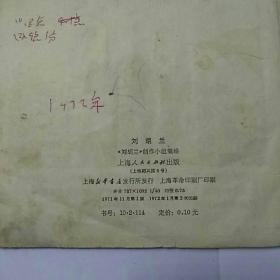 1972年
刘胡兰
《刘胡兰》创作小组编绘
上海人民出版社出版
(上海绍兴路5号)
上海新华书店发行所发行 上海革命印刷厂印刷
开本 787×1092 1/60 印张 8/75
1971年11月第1版 1972年1月第2次印刷
书号: 10·2·114 定价: 0.10元